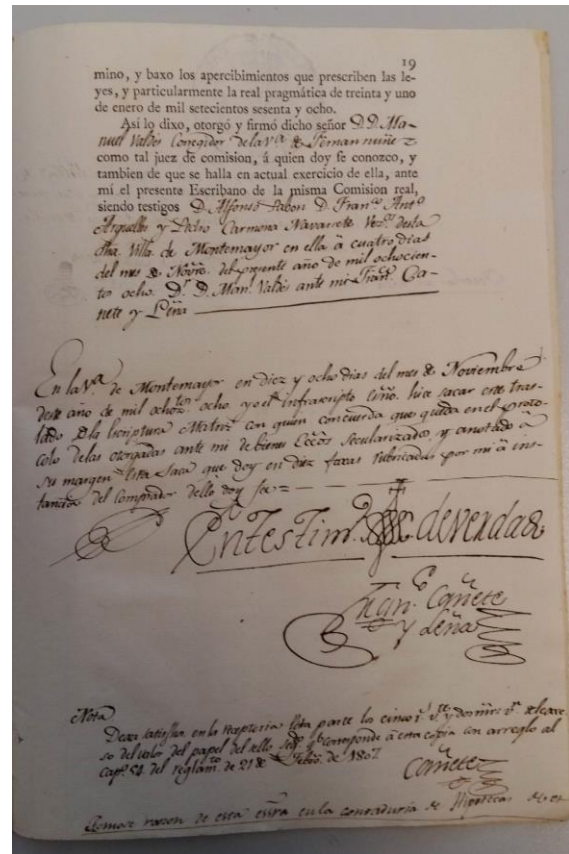 19
mino, y baxo los apercibimientos que prescriben las le-
yes, y particularmente la real pragmática de treinta y uno
de enero de mil setecientos sesenta y ocho.
Así lo dixo, otorgó y firmó dicho señor D. D. Ma-
nuel Valdés Corregidor de la Va. de Fernannuñez
como tal juez de comision, á quien doy fe conozco, y
tambien de que se halla en actual exercicio de ella, ante
mí el presente Escribano de la misma Comision real,
siendo testigos D. Alfonso D. Franco. Anto.
Arguelles y Pedro Carmona Navarrete Vezs. desta
dha Villa de Montemayor en ella à cuatro dias
del mes de Novre. del presente año de mil ochocien-
tos ocho. Dr. D. Manl. Valdés ante mi Franco. Ca-
ñete y Leña
En la Va. de Montemayor en diez y ocho dias del mes de Noviembre
deste año de mil ochotos. ocho yo el infrascripto Esno. hice sacar este tras-
lado de la Escriptura Matriz con quien concuerda que queda en el proto-
colo de las otorgadas ante mi de bienes secularizados, y anotado à
su margen esta saca que doy en diez foxas rubricadas por mi à ins-
tancia del Comprador dello doy fee =
En testimo. de verdad
Franco. Cañete
y Leña
Nota
Dexa satisfho. en la Receptoria esta parte los cinco rs. de
so del valor del papel del sello corresponde à esta copia con arreglo al
Capo. 54 del reglamto. de 21 de Febro. de 1807
Cañete
Tomase razon de esta essra. en la contaduria de Hipotecas